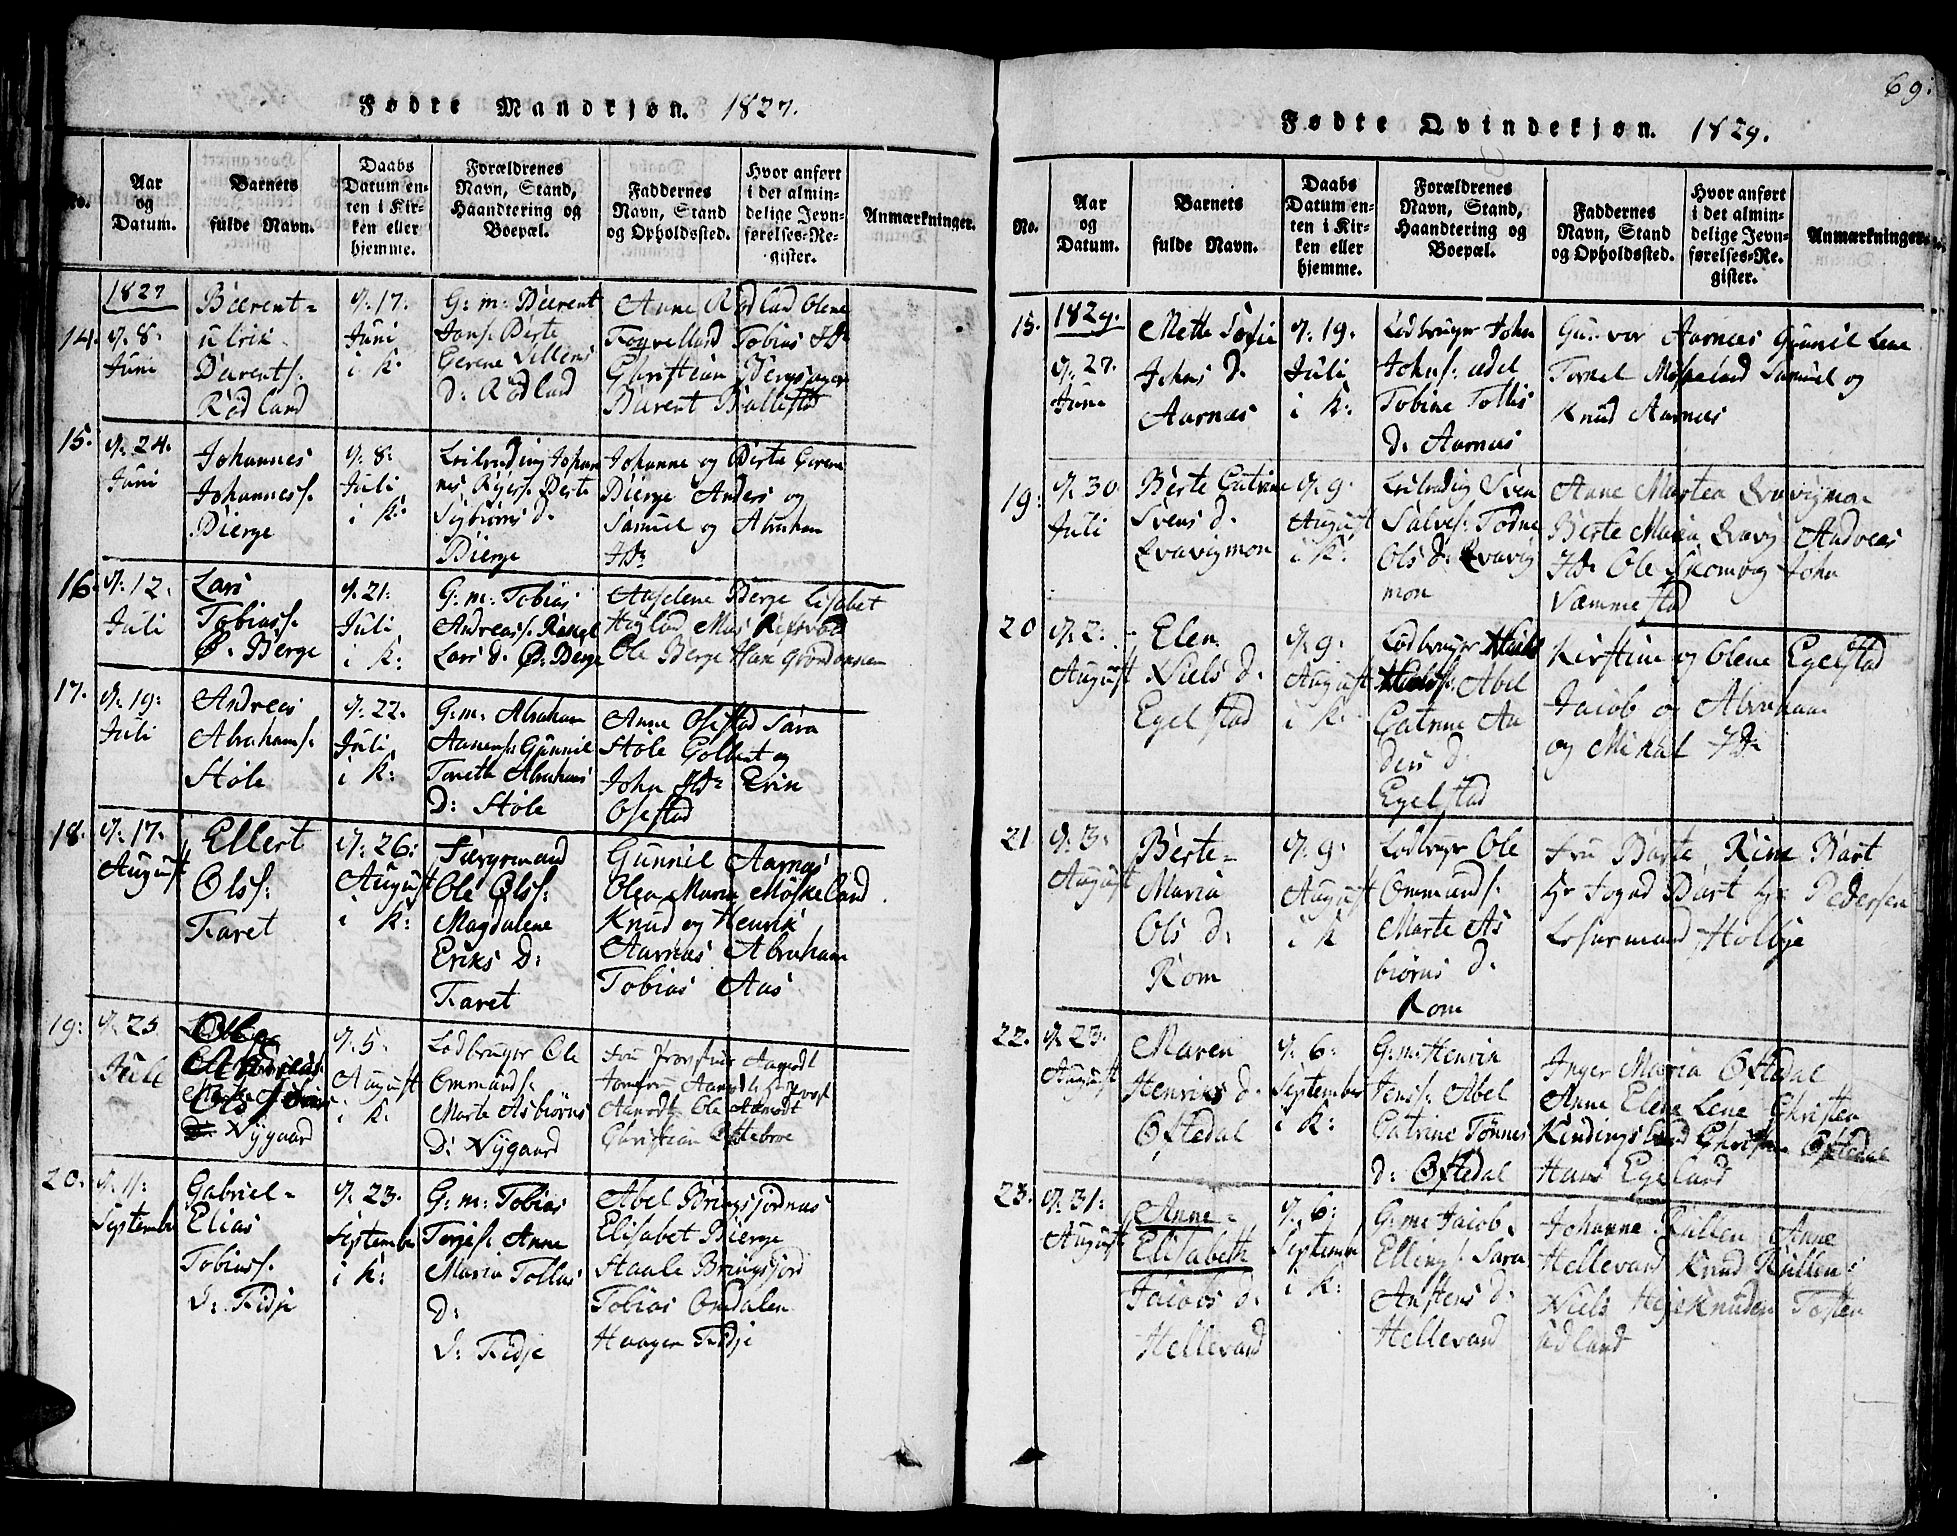 Fødte Mandkjøn. 1827.
No.
Aar
og
Datum.
Barnets
fulde Navn.
Daabs
Datum en-
ten i Kir-
ken eller
hjemme.
Forældrenes
Navn, Stand,
Haandtering og
Boepæl.
Faddernes
Navn, Stand
og Opholdssted.
Hvor anført
i det almin-
delige Jevn-
førelses-Re-
gister.
Anmærkninger.
14.
1827
d. 8.
Juni
Bærent-
ulrik
Bærents.
Rødland
d. 17.
Juni
i K:
G: m: Bærent
Jons. Berte
Gerene Villems
d: Rødland
Anne Rødland Olene
Fogvelland Tobias Jd.
Christian Bergsager
Bærent Ballestad
15.
d. 24.
Juni
Johannes
Johanness.
Bierge
d. 8.
Juli
i K:
Leilending Johan
nes Berte
Sigbiørns d.
Bierge
Johanne og Berte Gerene
Bierge Anders og
Samuel og Abraham
Jd.
16.
d. 12.
Juli
Lars
Tobiass.
Ø. Berge
d. 21.
Juli
i K:
G: m: Tobias
Andreass. Rakel
Lars d. Ø. Berge
Aaselene Berge Lisabet
Hogland
Ole Berge
17.
d. 19.
Juli
Andreas
Abrahams.
Støle
d. 22.
Juli
i K:
G: m: Abraham
Aanens. Gunnil
Toreth Abrahams
D: Støle
Anne Osestad Sara
Støle Golbent og
John Jd. Erik
Osestad
18.
d. 17.
August
Ellert
Olss:
Faret
d. 26.
August
i K:
Færgemand
Ole Olss:
Magdalene
Eriks D:
Faret
Gunnil Aarnas
Olea Maria Møskeland
Knud og Henrik
Aarnas Abraham
Tobias Aas
19.
d. 25
Juli
Nygaard
d. 5.
August
i K:
Ladbruger Ole
Ommunds.
Marte Asbiørns
D: Nygaard
Aamodt
Aamodt Ole Aamodt
Christian
20.
d. 11.
September
Gabriel-
Elias
Tobiass.
I. Fidje
d. 23.
September
i K:
G: m: Tobias
Terjes. Anne
Maria Tollas
D:
I: Fidje
Abel Bringsjordnes
Elisabet Bierge
Staale Bringsjord
Tobias Omdalen
Haagen Fidje
69.
Fødte Qvindekjøn. 1829.
No.
Aar
og
Datum.
Barnets
fulde Navn.
Daabs
Datum en-
ten i Kir-
ken eller
hjemme.
Forældrenes
Navn, Stand,
Haandtering og
Boepæl.
Faddernes
Navn, Stand
og Opholdssted.
Hvor anført
i det almin-
delige Jevn-
førelses-Re-
gister.
Anmærkninger.
15.
1829.
d. 27.
Juni
Mette Sofie
Johns d.
Aarnæs
d. 19.
Juli
i K:
Ladbruger John
Johns: Adel
Tobine Tollis
d. Aarnæs
Gunvor Aarnæs Gunnil Lene
Torkel Møskeland Samuel og
Knud Aarnæs
19.
d. 30
Juli
Berte Catrine
Svens d.
Qvavigmon
d. 9.
August
i K.
Leilending Sven
Salves. Todne
Ols d. Qvavig
mon
Anne Martea Qvavigmon
Berte Maria Qvavig Andreas
Jd. Ole Skomog John
Vammestad
20
d. 2.
August
Elen
Niels d.
Egelstad
d. 9.
August
i K.
Ladbruger Niels
Abel
Catrine An
ders d.
Egelstad
Kirstine og Olene Egelstad
Jacob og Abraham
og Mikal Jd.
21
d. 3.
August
Berte-
Maria
Ols d.
Rom
d. 9.
August
i K
Ladbruger Ole
Ommunds.
Marte As
biørns d.
Rom
Fru Barte, Rine Bart
Hr Fogad Bart Hr. Pedersen
Holbye
22.
d. 23.
August
Maren
Henriks d.
Oftedal
d. 6.
September
i K:
G: m: Henrik
Jens. Abel
Catrine Tønnes
d. Oftedal
Inger Maria Oftedal
Anne Elene Lene Christen
Kindingsland Oftedal
Hans Egeland
23.
d. 31.
August
Anne-
Elisabeth
Jacobs d.
Hellevand
d. 6.
September
i K:
G: m: Jacob
Ellings. Sara
Anstens d.
Hellevand
Johanne Rullen Anne
Hellevand Knud Rullen
Niels Hegeknuden Tosten
Udland